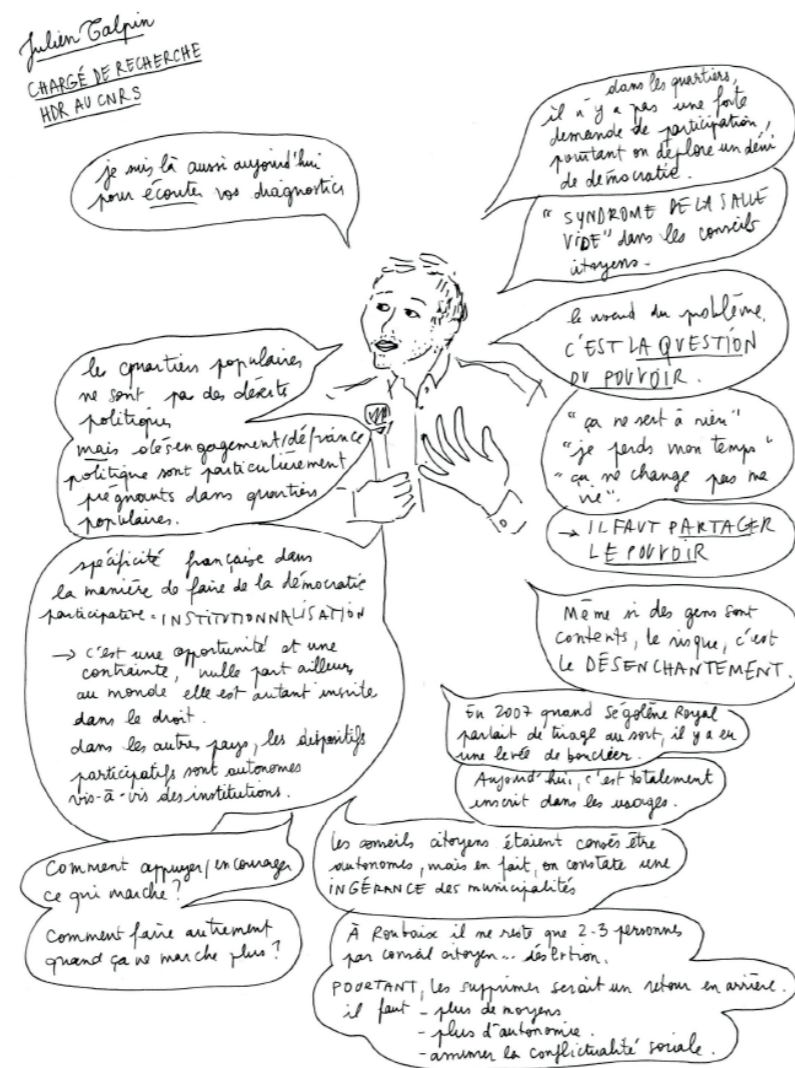 Julien Talpin
CHARGÉ DE RECHERCHE
HDR AU CNRS
je suis là aussi aujourd'hui
pour écouter vos diagnostics
les quartiers populaires
ne sont pas des déserts
politiques
mais désengagement/défiance
politique sont particulièrement
prégnants dans quartiers
populaires.
spécificité française dans
la manière de faire de la démocratie
participative = INSTITUTIONNALISATION
→ c'est une opportunité et une
contrainte, nulle part ailleurs
au monde elle est autant inscrite
dans le droit.
dans les autres pays, les dispositifs
participatifs sont autonomes
vis-à-vis des institutions.
Comment appuyer/encourager
ce qui marche ?
Comment faire autrement
quand ça ne marche plus ?
dans les quartiers,
il n'y a pas une forte
demande de participation,
pourtant on déplore un déni
de démocratie.
"SYNDROME DE LA SALLE
VIDE" dans les conseils
citoyens.
le nœud du problème,
C'EST LA QUESTION
DU POUVOIR.
"ça ne sert à rien"
"je perds mon temps"
"ça ne change pas ma
vie".
→ IL FAUT PARTAGER
LE POUVOIR
Même si des gens sont
contents, le risque, c'est
le DÉSENCHANTEMENT.
En 2007 quand Ségolène Royal
parlait de tirage au sort, il y a eu
une levée de bouclier.
Aujourd'hui, c'est totalement
inscrit dans les usages.
Les conseils citoyens étaient censés être
autonomes, mais en fait, on constate une
INGÉRANCE des municipalités
À Roubaix il ne reste que 2-3 personnes
par conseil citoyen... désertion.
POURTANT, les supprimer serait un retour en arrière.
il faut - plus de moyens
- plus d'autonomie.
- amener la conflictualité sociale.